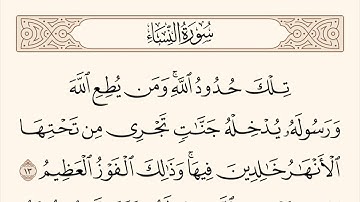 سُورَةُ النِّسَاءِ
تِلْكَ حُدُودُ ٱللَّهِۚ وَمَن يُطِعِ ٱللَّهَ
وَرَسُولَهُۥ يُدْخِلْهُ جَنَّٰتٍ تَجْرِى مِن تَحْتِهَا
ٱلْأَنْهَٰرُ خَٰلِدِينَ فِيهَاۚ وَذَٰلِكَ ٱلْفَوْزُ ٱلْعَظِيمُ ١٣